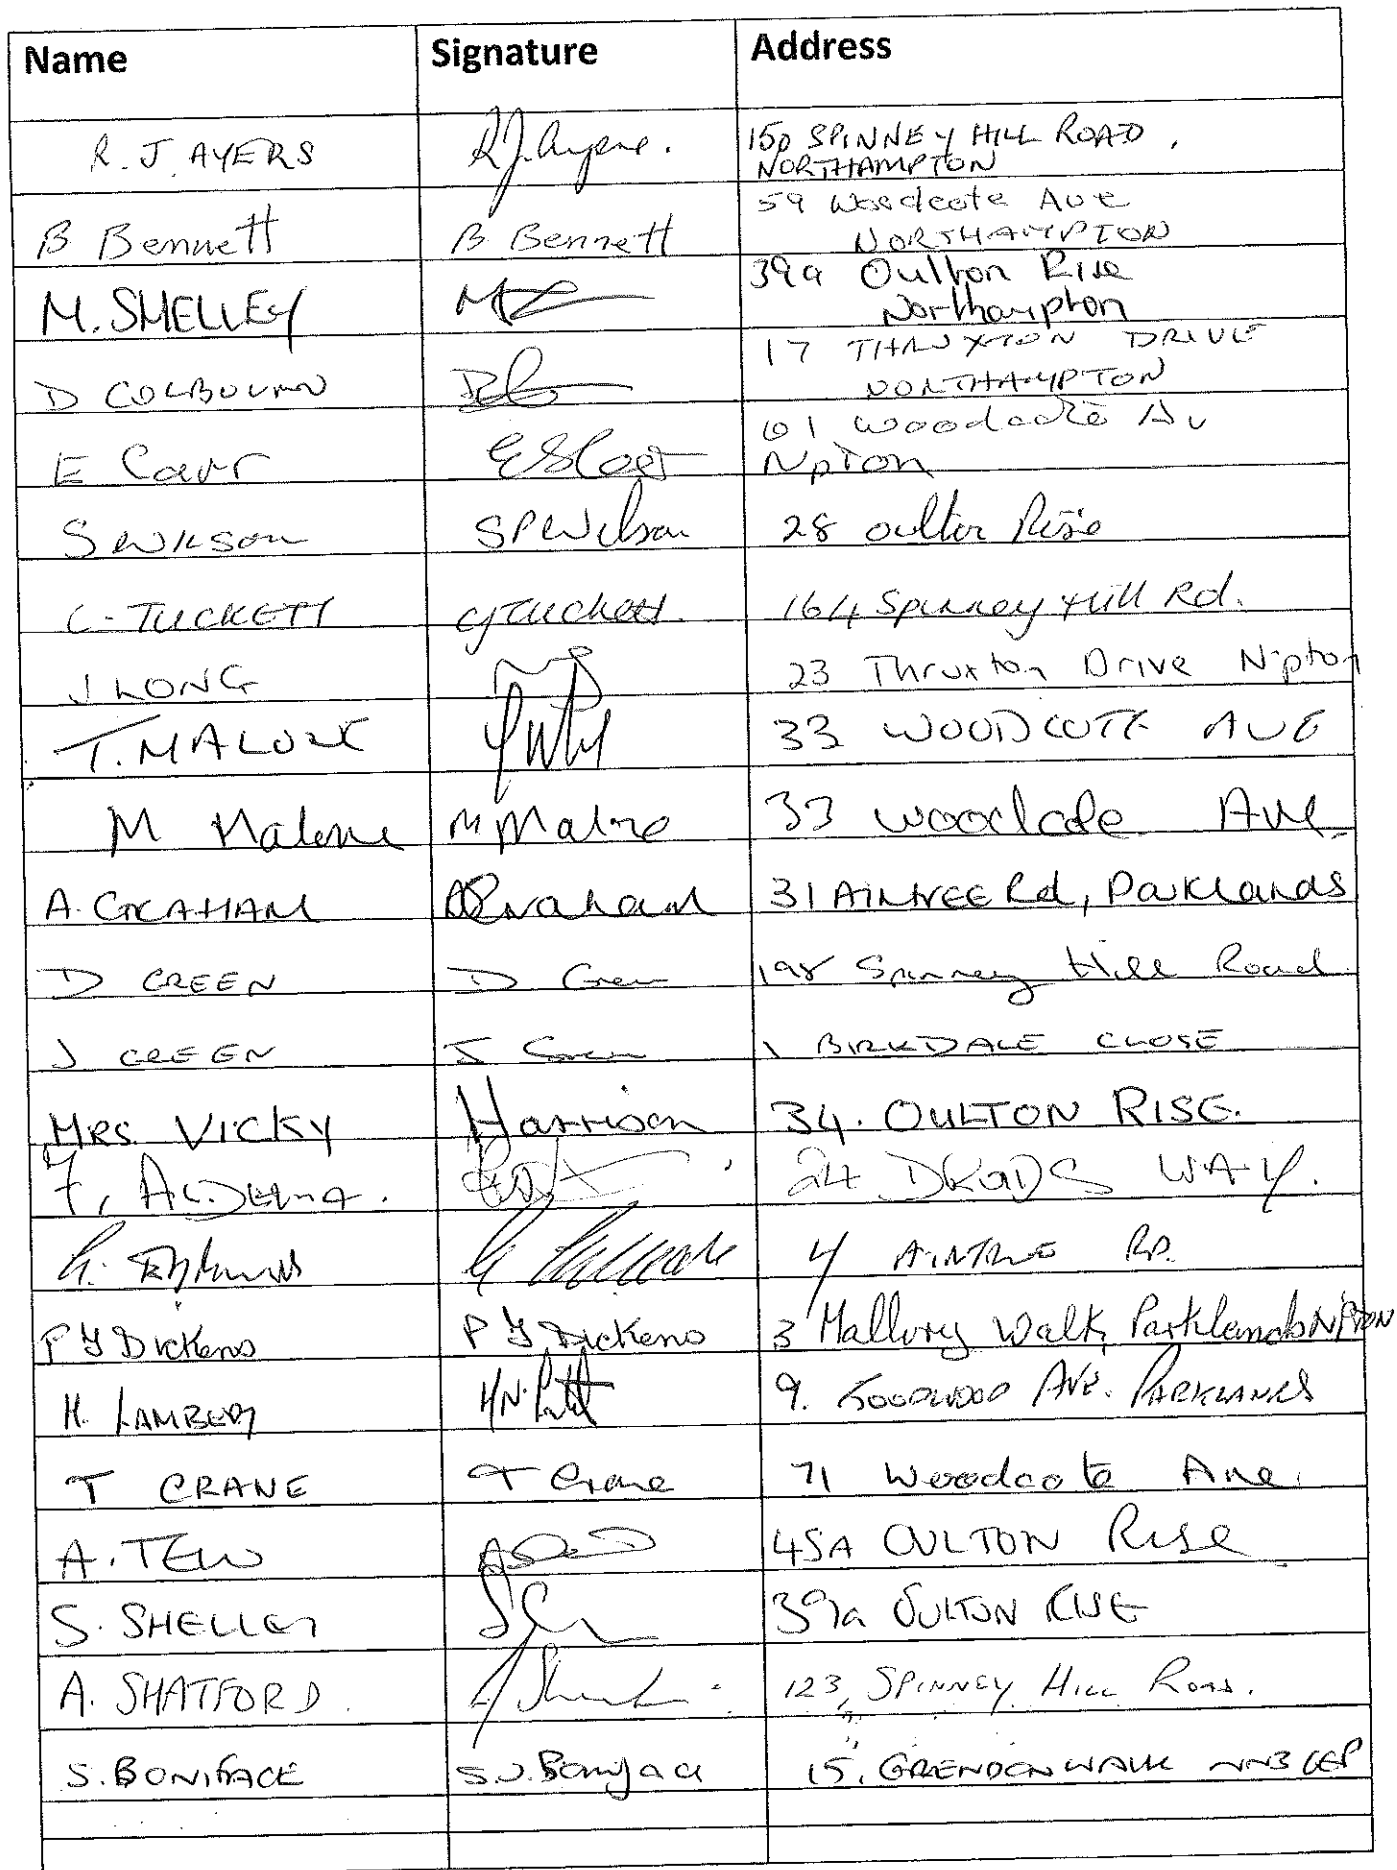 Name Signature Address
R. J. AYERS R.J. Ayers. 150 SPINNEY HILL ROAD,
NORTHAMPTON
B Bennett B Bennett 59 Woodcote Ave
NORTHAMPTON
M. SHELLEY 39a Oulton Rise
Northampton
D COLBOURN 17 THRUXTON DRIVE
NORTHAMPTON
E Carr 61 Woodcote Av
Npton
S WILSON SP Wilson 28 Oulton Rise
C. TUCKETT CJ Tuckett. 164 Spinney Hill Rd.
J LONG 23 Thruxton Drive N'pton
T. MALONE 33 WOODCOTE AVE
M Malone M Malone 33 Woodcote Ave.
A. GRAHAM A Graham 31 AINTREE Rd, Parklands
D GREEN D Green 198 Spinney Hill Road.
J GREEN J Green 1 BIRKDALE CLOSE
MRS. VICKY Harrison 34. OULTON RISE.
F, 24 WAY.
G. 4 AINTREE RD.
P J Dickens P J Dickens 3 Mallory Walk, Parklands N'PTON
H. LAMBERT 9. GOODWOOD AVE. PARKLANDS
T CRANE T Crane 71 Woodcote Ave.
A. TEW 45A OULTON RISE
S. SHELLEY 39a OULTON RISE
A. SHATFORD. 123, SPINNEY HILL ROAD.
S. BONIFACE S.J. Boniface 15, GRENDON WALK NN3 6EP